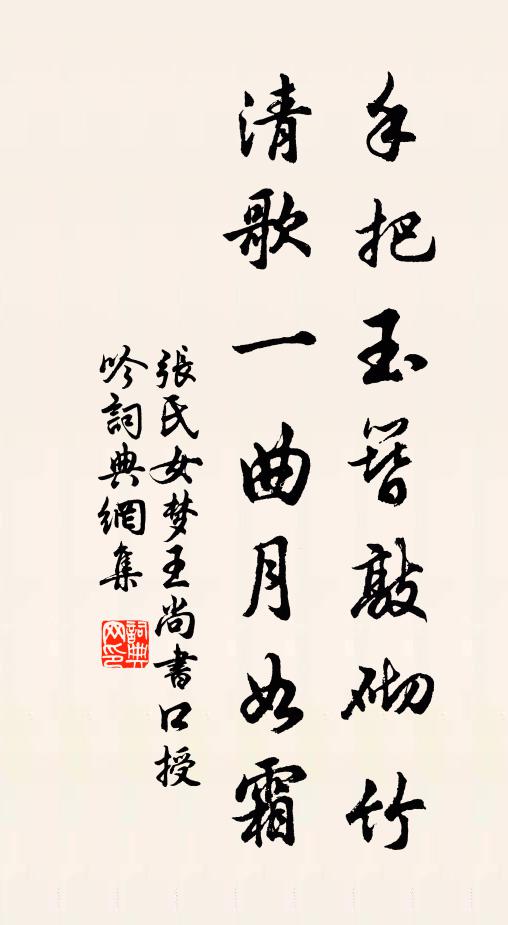 手把玉簪敲砌竹
清歌一曲月如霜
張氏女梦王尚書口授
吟詞典網集
詞典
网印